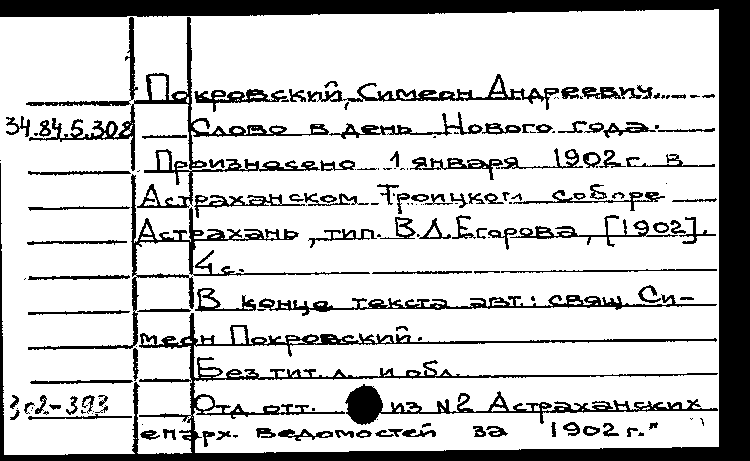 Покровский, Симеон Андреевич.
34.84.5.308 Слово в день Нового года.
Произнесено 1 января 1902 г. в
Астраханском Троицком соборе
Астрахань, тип. В.Л.Егорова, [1902].
4 с.
В конце текста авт.: свящ. Си-
меон Покровский.
Без тит. л. и обл.
302-393 Отд. отт. из №2 Астраханских
епарх. ведомостей за 1902 г."